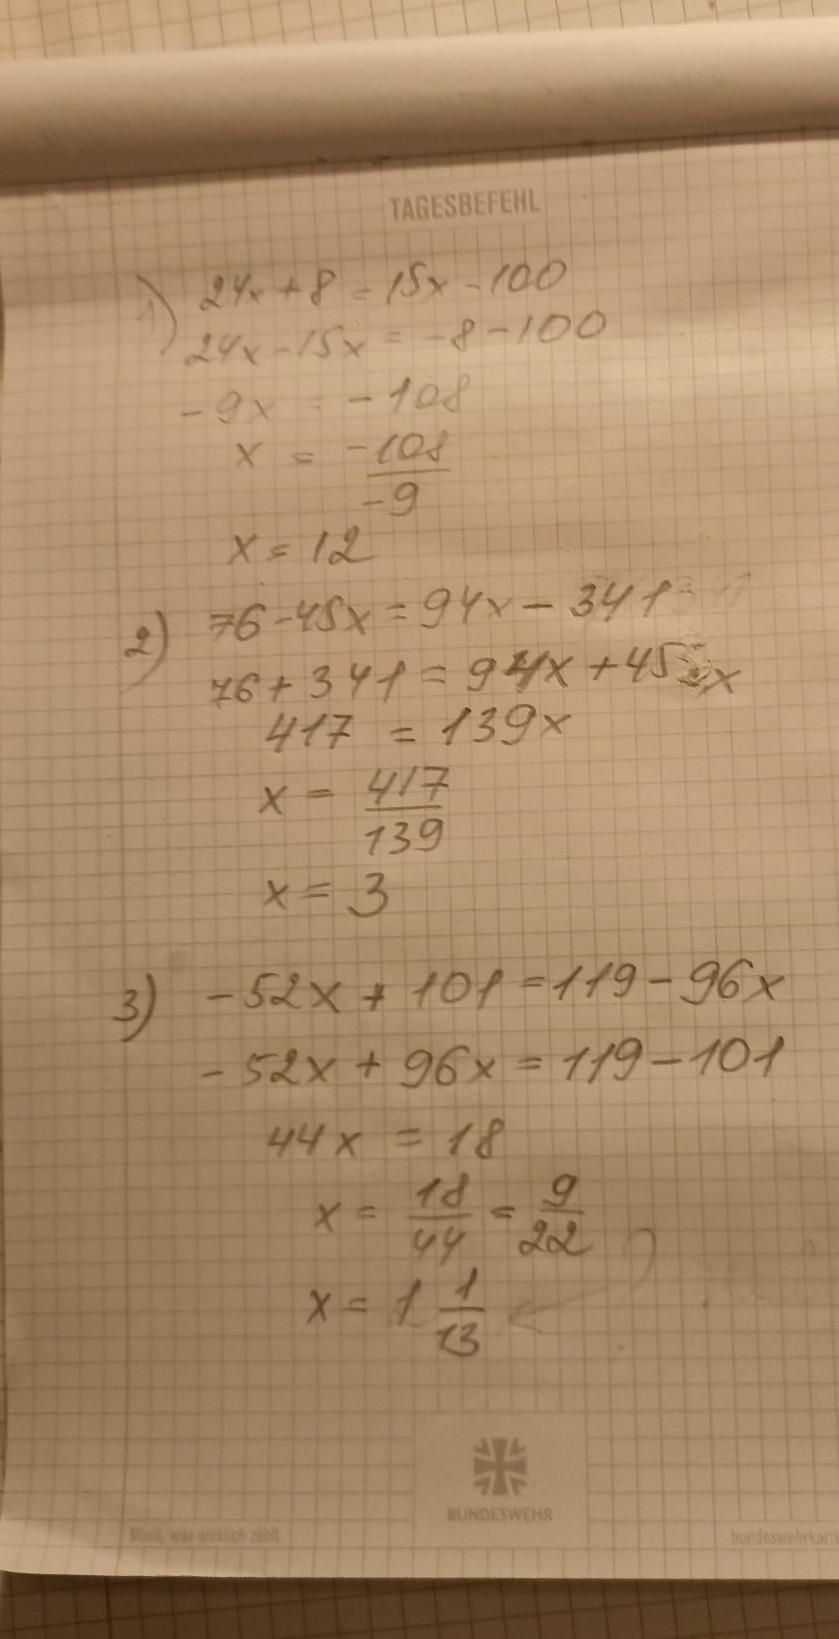 TAGESBEFEHL
1) 24x + 8 = 15x - 100
24x - 15x = -8 - 100
- 9x = - 108
x = -108/-9
x = 12
2) 76 - 45x = 94x - 341
76 + 341 = 94x + 45x
417 = 139x
x = 417/139
x = 3
3) - 52x + 101 = 119 - 96x
- 52x + 96x = 119 - 101
44x = 18
x = 18/44 = 9/22
x = 1 1/13
BUNDESWEHR
Mach, was wirklich zählt.